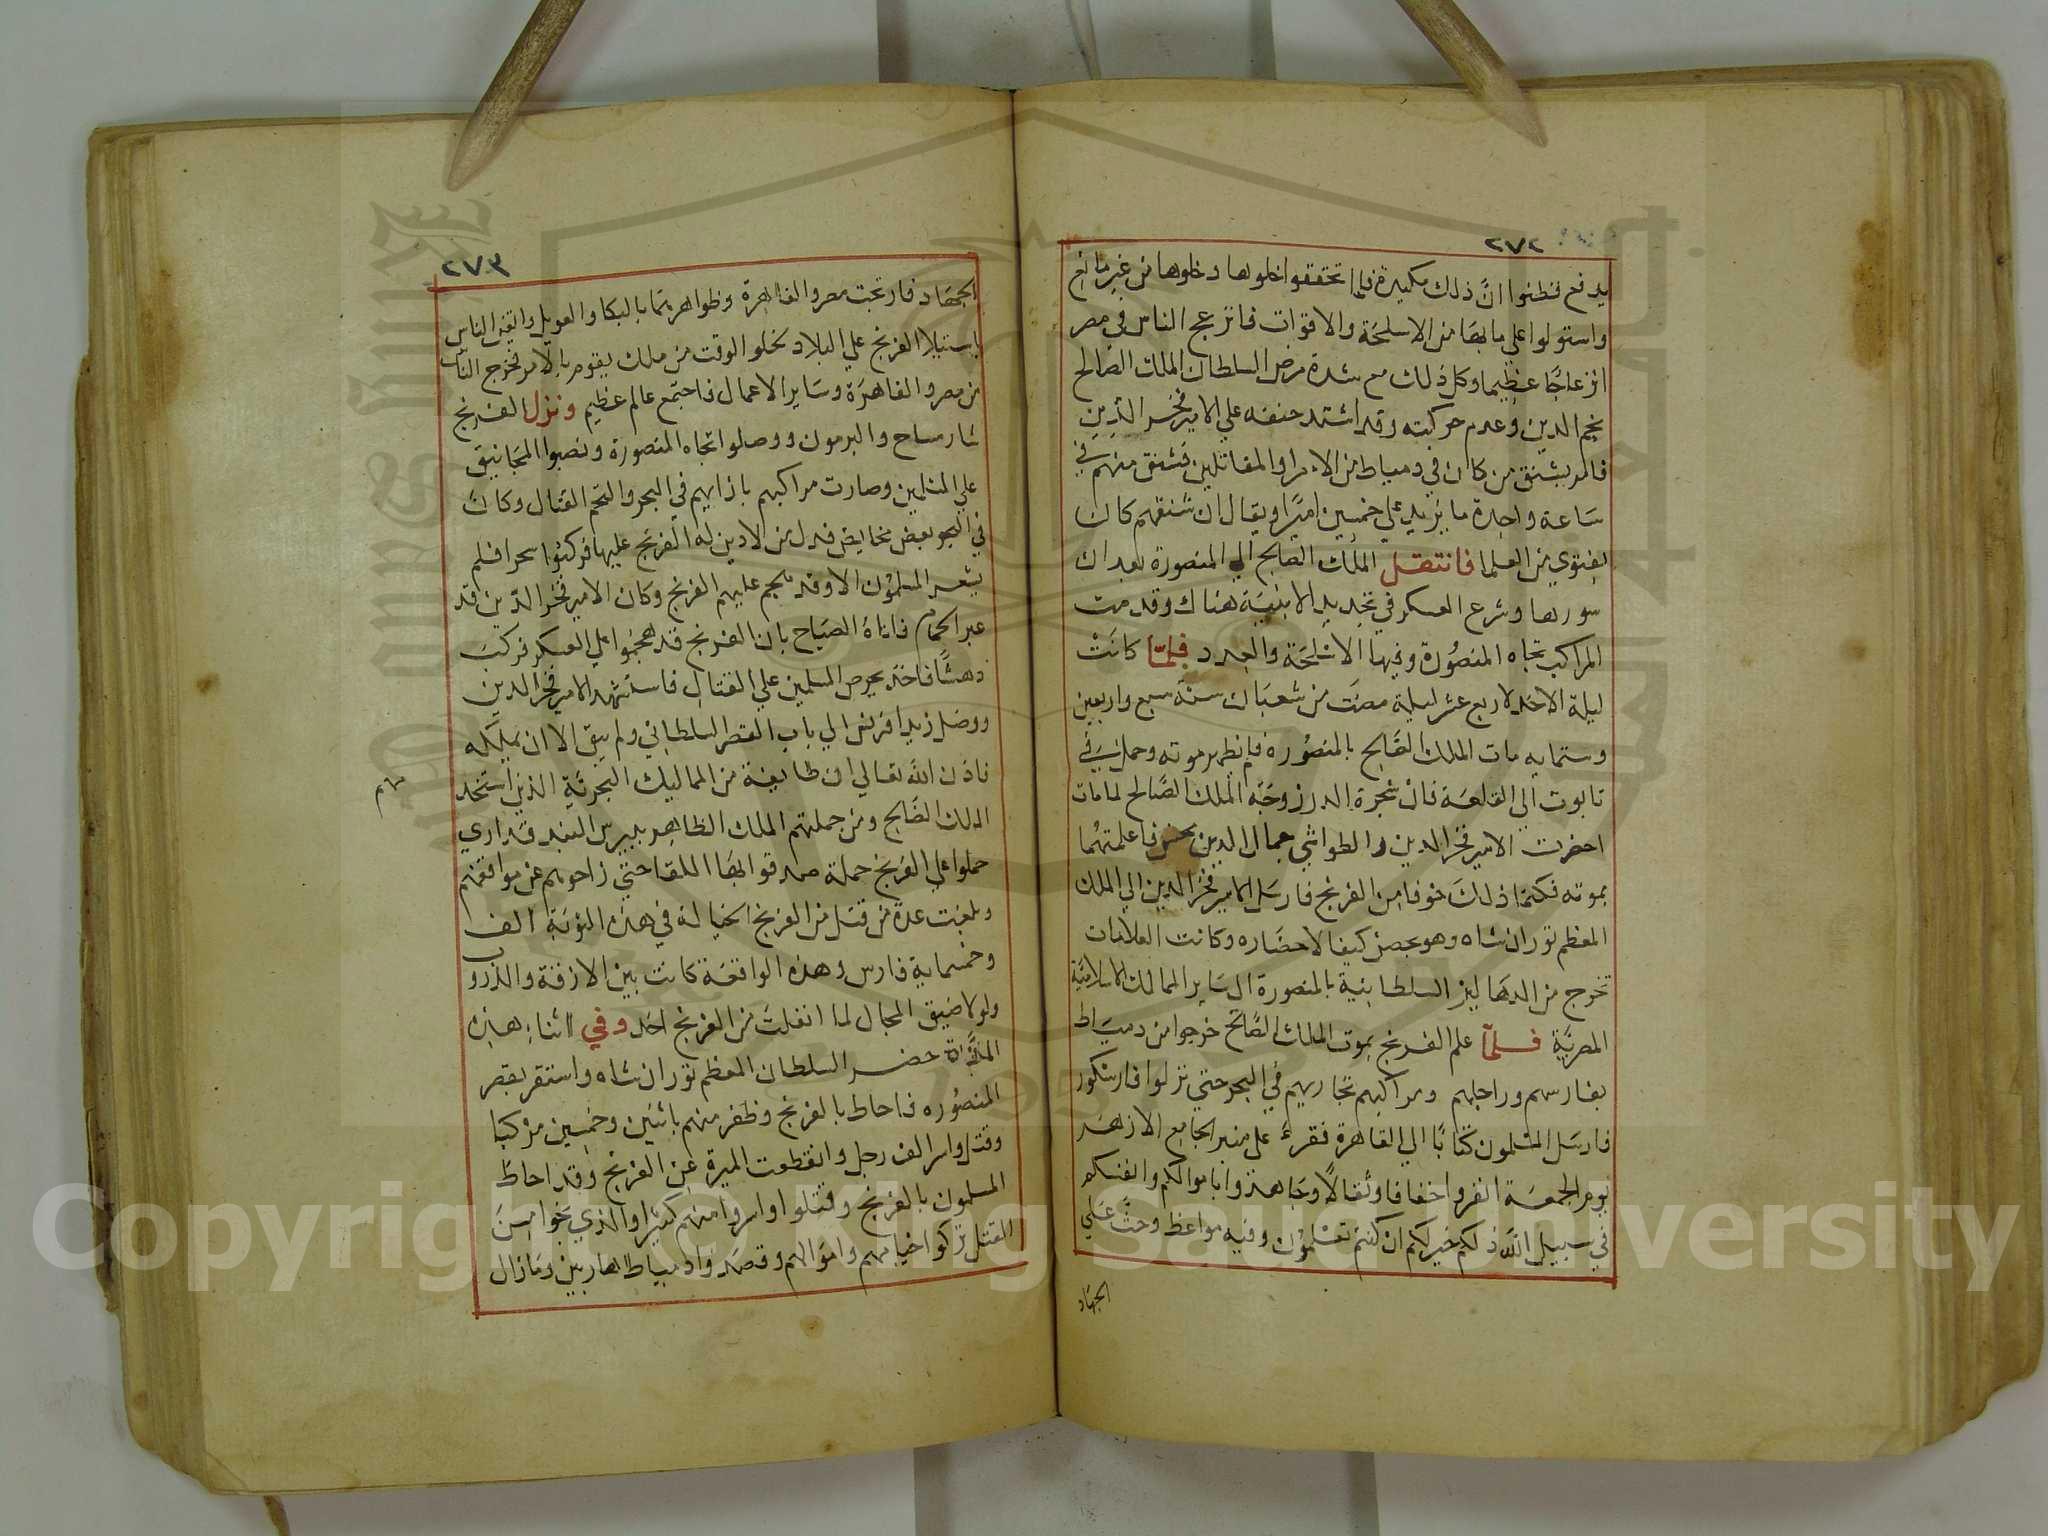 ٢٧٢
يدفع فظنوا انّ ذلك مكيدة فلما تحققوا خلوها دخلوها من غير مانع
واستولوا علي ما بها من الاسلحة والاقوات فانزعج الناس في مصر
انزعاجًا عظيما وكل ذلك مع شدة مرض السلطان الملك الصالح
نجم الدين وعدم حركته وقد اشتد حنقه علي الامير فخر الدين
فامر بشنق من كان في دمياط من الامرا والمقاتلين فشنق منهم في
ساعة واحدة ما يزيد علي خمسين اميرًا ويقال ان شنقهم كان
بفتوي من العلما فانتقل الملك الصالح الي المنصورة بعد ان
سورها وشرع العسكر في تجديد الابنية هناك وقدمت
المراكب تجاه المنصورة وفيها الاسلحة والعدد فلمّا كانت
ليلة الاحد لاربع عشر ليلة مضت من شعبان سنة سبع واربعين
وستمايه مات الملك الصالح بالمنصورة فلم يظهر موته وحمل في
تابوت الي القلعة فان شجرة الدر زوجة الملك الصالح لما مات
احضرت الامير فخر الدين والطواشي جمال الدين محسن فاعلمتهما
بموته فكتما ذلك خوفا من الفرنج فارسل الامير فخر الدين الي الملك
المعظم توران شاه وهو بحصن كيفا لاحضاره وكانت العلامات
تخرج من الدهاليز السلطانية بالمنصورة الي ساير الممالك الاسلامية
المصرية فلمّا علم الفرنج بموت الملك الصالح خرجوا من دمياط
بفارسهم وراجلهم ومراكبهم تحاذيهم في البحر حتي نزلوا فارسكور
فارسل المسلمون كتابًا الي القاهرة فقرء علي منبر الجامع الازهر
يوم الجمعة انفروا خفافا وثقالًا وجاهدوا باموالكم وانفسكم
في سبيل الله ذلكم خير لكم ان كنتم تعلمون وفيه مواعظ وحث علي
الجهاد
٢٧٣
الجهاد فارتجت مصر والقاهرة وظواهرهما بالبكا والعويل وايقن الناس
باستيلا الفرنج علي البلاد لخلو الوقت من ملك يقوم بالامر فخرج الناس
من مصر والقاهرة وساير الاعمال فاجتمع عالم عظيم ونزل الفرنج
شارمساح والبرمون ووصلوا تجاه المنصورة ونصبوا المجانيق
علي المسلمين وصارت مراكبهم بازايهم في البحر والتحم القتال وكان
في البحر بعض مخايض فدل من لا دين له الفرنج عليها فركبوا سحرا فلم
يشعر المسلمون الا وقد هجم عليهم الفرنج وكان الامير فخر الدين قد
عبر الحمام فاتاه الصياح بان الفرنج قد هجموا علي العسكر فركب
دهشًا فاخذ يحرض المسلمين علي القتال فاستشهد الامير فخر الدين
ووصل زيد افرنس الي باب القصر السلطاني ولم يبق الا ان يملكه
فاذن الله تعالي ان طايفة من المماليك البحرية الذين استخد
مهم
الملك الصالح ومن جملتهم الملك الظاهر بيبرس البندقداري
حملوا علي الفرنج حملة صدقوا بها اللقا حتي زاحوهم عن مواقفهم
وبلغت عدة من قتل من الفرنج الخيالة في هذه النوبة الف
وخمسماية فارس وهذه الواقعة كانت بين الازقة والدروب
ولولا ضيق المجال لما انفلت من الفرنج احد وفي اثناء هذه
حضر السلطان المعظم توران شاه واستقر بقصر
المنصوره فاحاط بالفرنج وظفر منهم باثنين وخمسين مركبا
وقتل واسر الف رجل وانقطعت الميرة عن الفرنج وقد احاط
المسلمون بالفرنج وقتلوا واسروا منهم كثيرا والذي نجوا من
القتل تركوا خيامهم واموالهم وقصدوا دمياط هاربين وما زال
Copyright © King Saud University